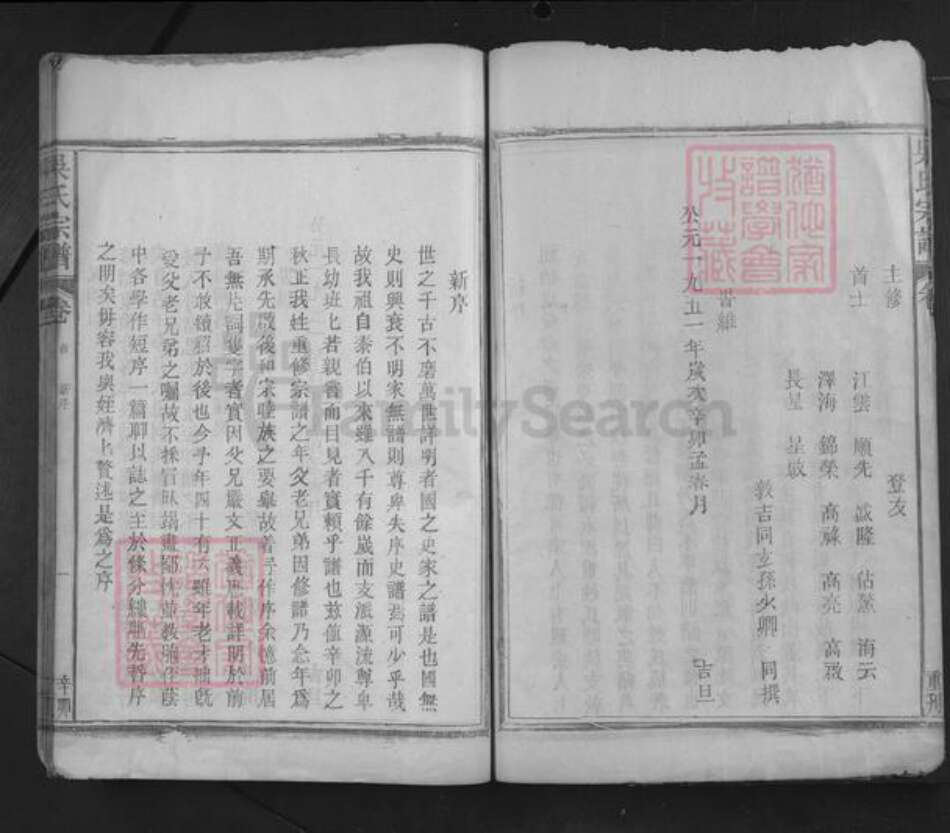 主修
登友
首士
江雲 願先 海云
澤海 錦榮 高亮
長星 星啟
敦吉同玄孫少卿 同撰
公元一九五一年歲次辛卯孟春月
吉旦
吳氏宗譜
新序
世之千古不磨萬世詳明者國之史家之譜是也國無
史則興衰不明家無譜則尊卑失序史譜焉可少乎哉
故我祖自泰伯以來雖八千有餘歲而支派源流尊卑
長幼班七若親眷而目見者實賴乎譜也茲值辛卯之
秋正我姓重修宗譜之年父老兄弟因修譜乃念年爲
期承先啟後和宗睦族之要舉故著予作序余憶前居
吾無片詞隻字者實因父兄嚴文正義悉載詳明於前
予不敢續貂於後也今予年四十有六雖年老才拙旣
愛父老兄弟之囑故不
中各學作短序一篇聊以誌之至於條分縷晰先哲序
之明矣毋容我與姪濟七贅述是爲之序
FamilySearch